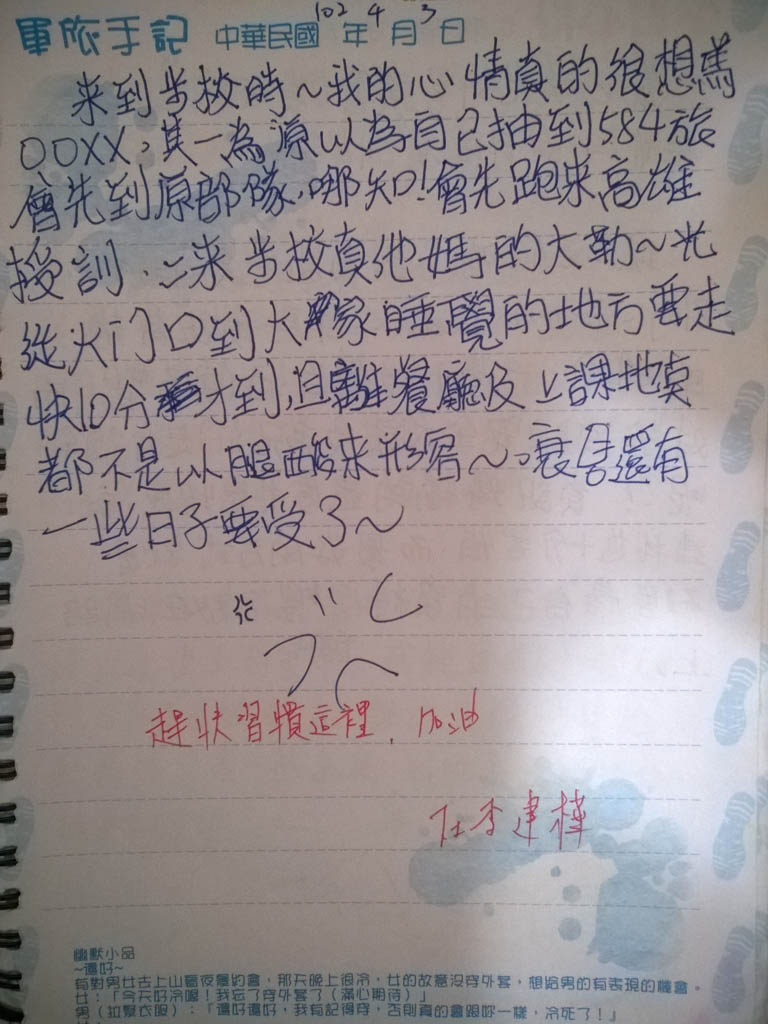 軍旅手記 中華民國 102 年 4 月 3 日
来到步校時~我的心情真的很想罵
OOXX，其一為原以為自己抽到584旅
會先到原部隊，哪知!會先跑来高雄
授訓，二来步校真他媽的大勒~光
從大门口到大家睡覺的地方要走
快10分才到，且離餐廳及上課地點
都不是以腿酸来形容~。裏害還有
一些日子要受了~
趕快習慣這裡，加油
李建樺
幽默小品
~還好~
有對男女去上山看夜景約會，那天晚上很冷，女的故意沒穿外套，想給男的有表現的機會。
女：「今天好冷喔！我忘了穿外套了（滿心期待）」
男（拉緊衣服）：「還好還好，我有記得穿，否則真的會跟妳一樣，冷死了！」